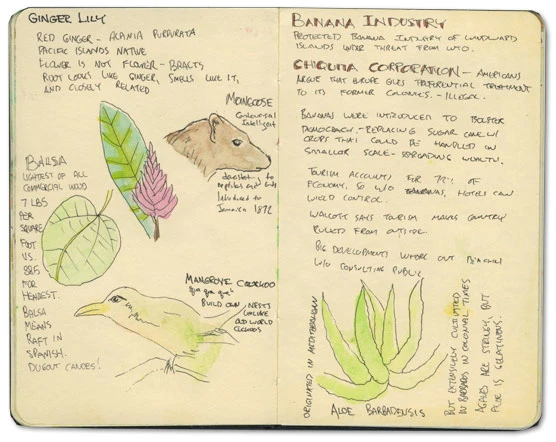 GINGER LILY
RED GINGER - ALPINIA PURPURATA
PACIFIC ISLANDS NATIVE
FLOWER IS NOT FLOWER - BRACTS
ROOT LOOKS LIKE GINGER, SMELLS LIKE IT,
AND CLOSELY RELATED
MONGOOSE
Intelligent
devastating to
reptiles and birds
Introduced to
Jamaica 1872
BALSA
LIGHTEST OF ALL
COMMERCIAL WOOD
7 LBS
PER
SQUARE
FOOT
VS.
88.5
FOR
HEAVIEST.
BALSA
MEANS
RAFT IN
SPANISH.
DUGOUT CANOES!
MANGROVE CUCKOO
"ga ga ga"
BUILD OWN NESTS
UNLIKE
OLD WORLD
CUCKOOS
BANANA INDUSTRY
PROTECTED BANANA INDUSTRY OF WINDWARD
ISLANDS UNDER THREAT FROM WTO.
CHIQUITA CORPORATION - AMERICANS
ARGUE THAT EUROPE GIVES PREFERENTIAL TREATMENT
TO ITS FORMER COLONIES. - ILLEGAL.
BANANAS WERE INTRODUCED TO BOLSTER
DEMOCRACY - REPLACING SUGAR CANE W/
CROPS THAT COULD BE HANDLED ON
SMALLER SCALE - SPREADING WEALTH.
TOURISM ACCOUNTS FOR 72% OF
ECONOMY, SO W/O BANANAS, HOTELS CAN
WIELD CONTROL.
WALCOTT SAYS TOURISM MAKES COUNTRY
RULED FROM OUTSIDE.
BIG DEVELOPMENTS WHORE OUT BEACHES
W/O CONSULTING PUBLIC
ORIGINATED IN MEDITERRANEAN
ALOE BARBADENSIS
BUT EXTENSIVELY CULTIVATED
IN BARBADOS IN COLONIAL TIMES
AGAVES ARE STRINGY, BUT
ALOE IS GELATINOUS.